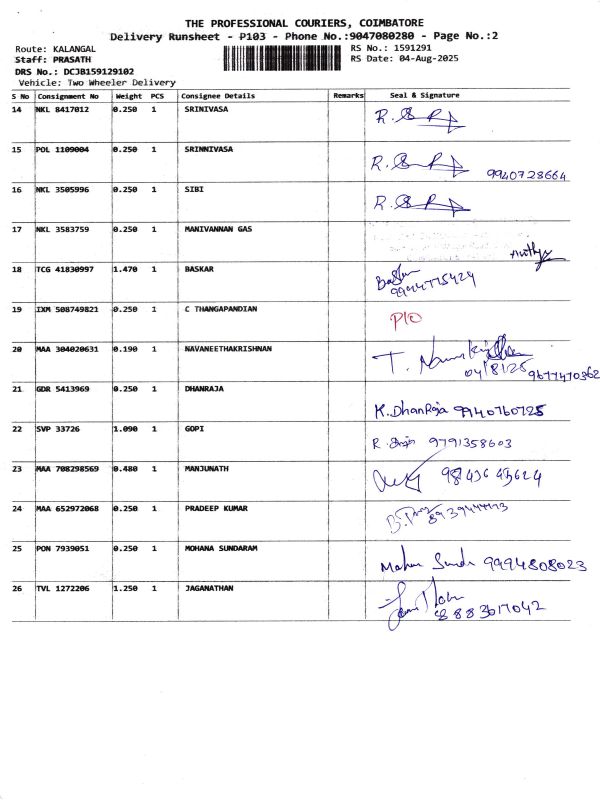 THE PROFESSIONAL COURIERS, COIMBATORE
Delivery Runsheet - P103 - Phone No.:9047080280 - Page No.:2
Route: KALANGAL RS No.: 1591291
Staff: PRASATH RS Date: 04-Aug-2025
DRS No.: DCJB159129102
Vehicle: Two Wheeler Delivery
S No Consignment No Weight PCS Consignee Details Remarks Seal & Signature
14 NKL 8417012 0.250 1 SRINIVASA
15 POL 1109004 0.250 1 SRINNIVASA 9940728664
16 NKL 3505996 0.250 1 SIBI
17 NKL 3583759 0.250 1 MANIVANNAN GAS
18 TCG 41830997 1.470 1 BASKAR
9944775424
19 IXM 508749821 0.250 1 C THANGAPANDIAN P/O
20 MAA 304020631 0.190 1 NAVANEETHAKRISHNAN
04/8/25 9677470362
21 GDR 5413969 0.250 1 DHANRAJA K.DhanRaja 9940760725
22 SVP 33726 1.090 1 GOPI 9791358603
23 MAA 708298569 0.480 1 MANJUNATH
24 MAA 652972068 0.250 1 PRADEEP KUMAR
25 PON 7939051 0.250 1 MOHANA SUNDARAM 9994808023
26 TVL 1272206 1.250 1 JAGANATHAN
8883017042